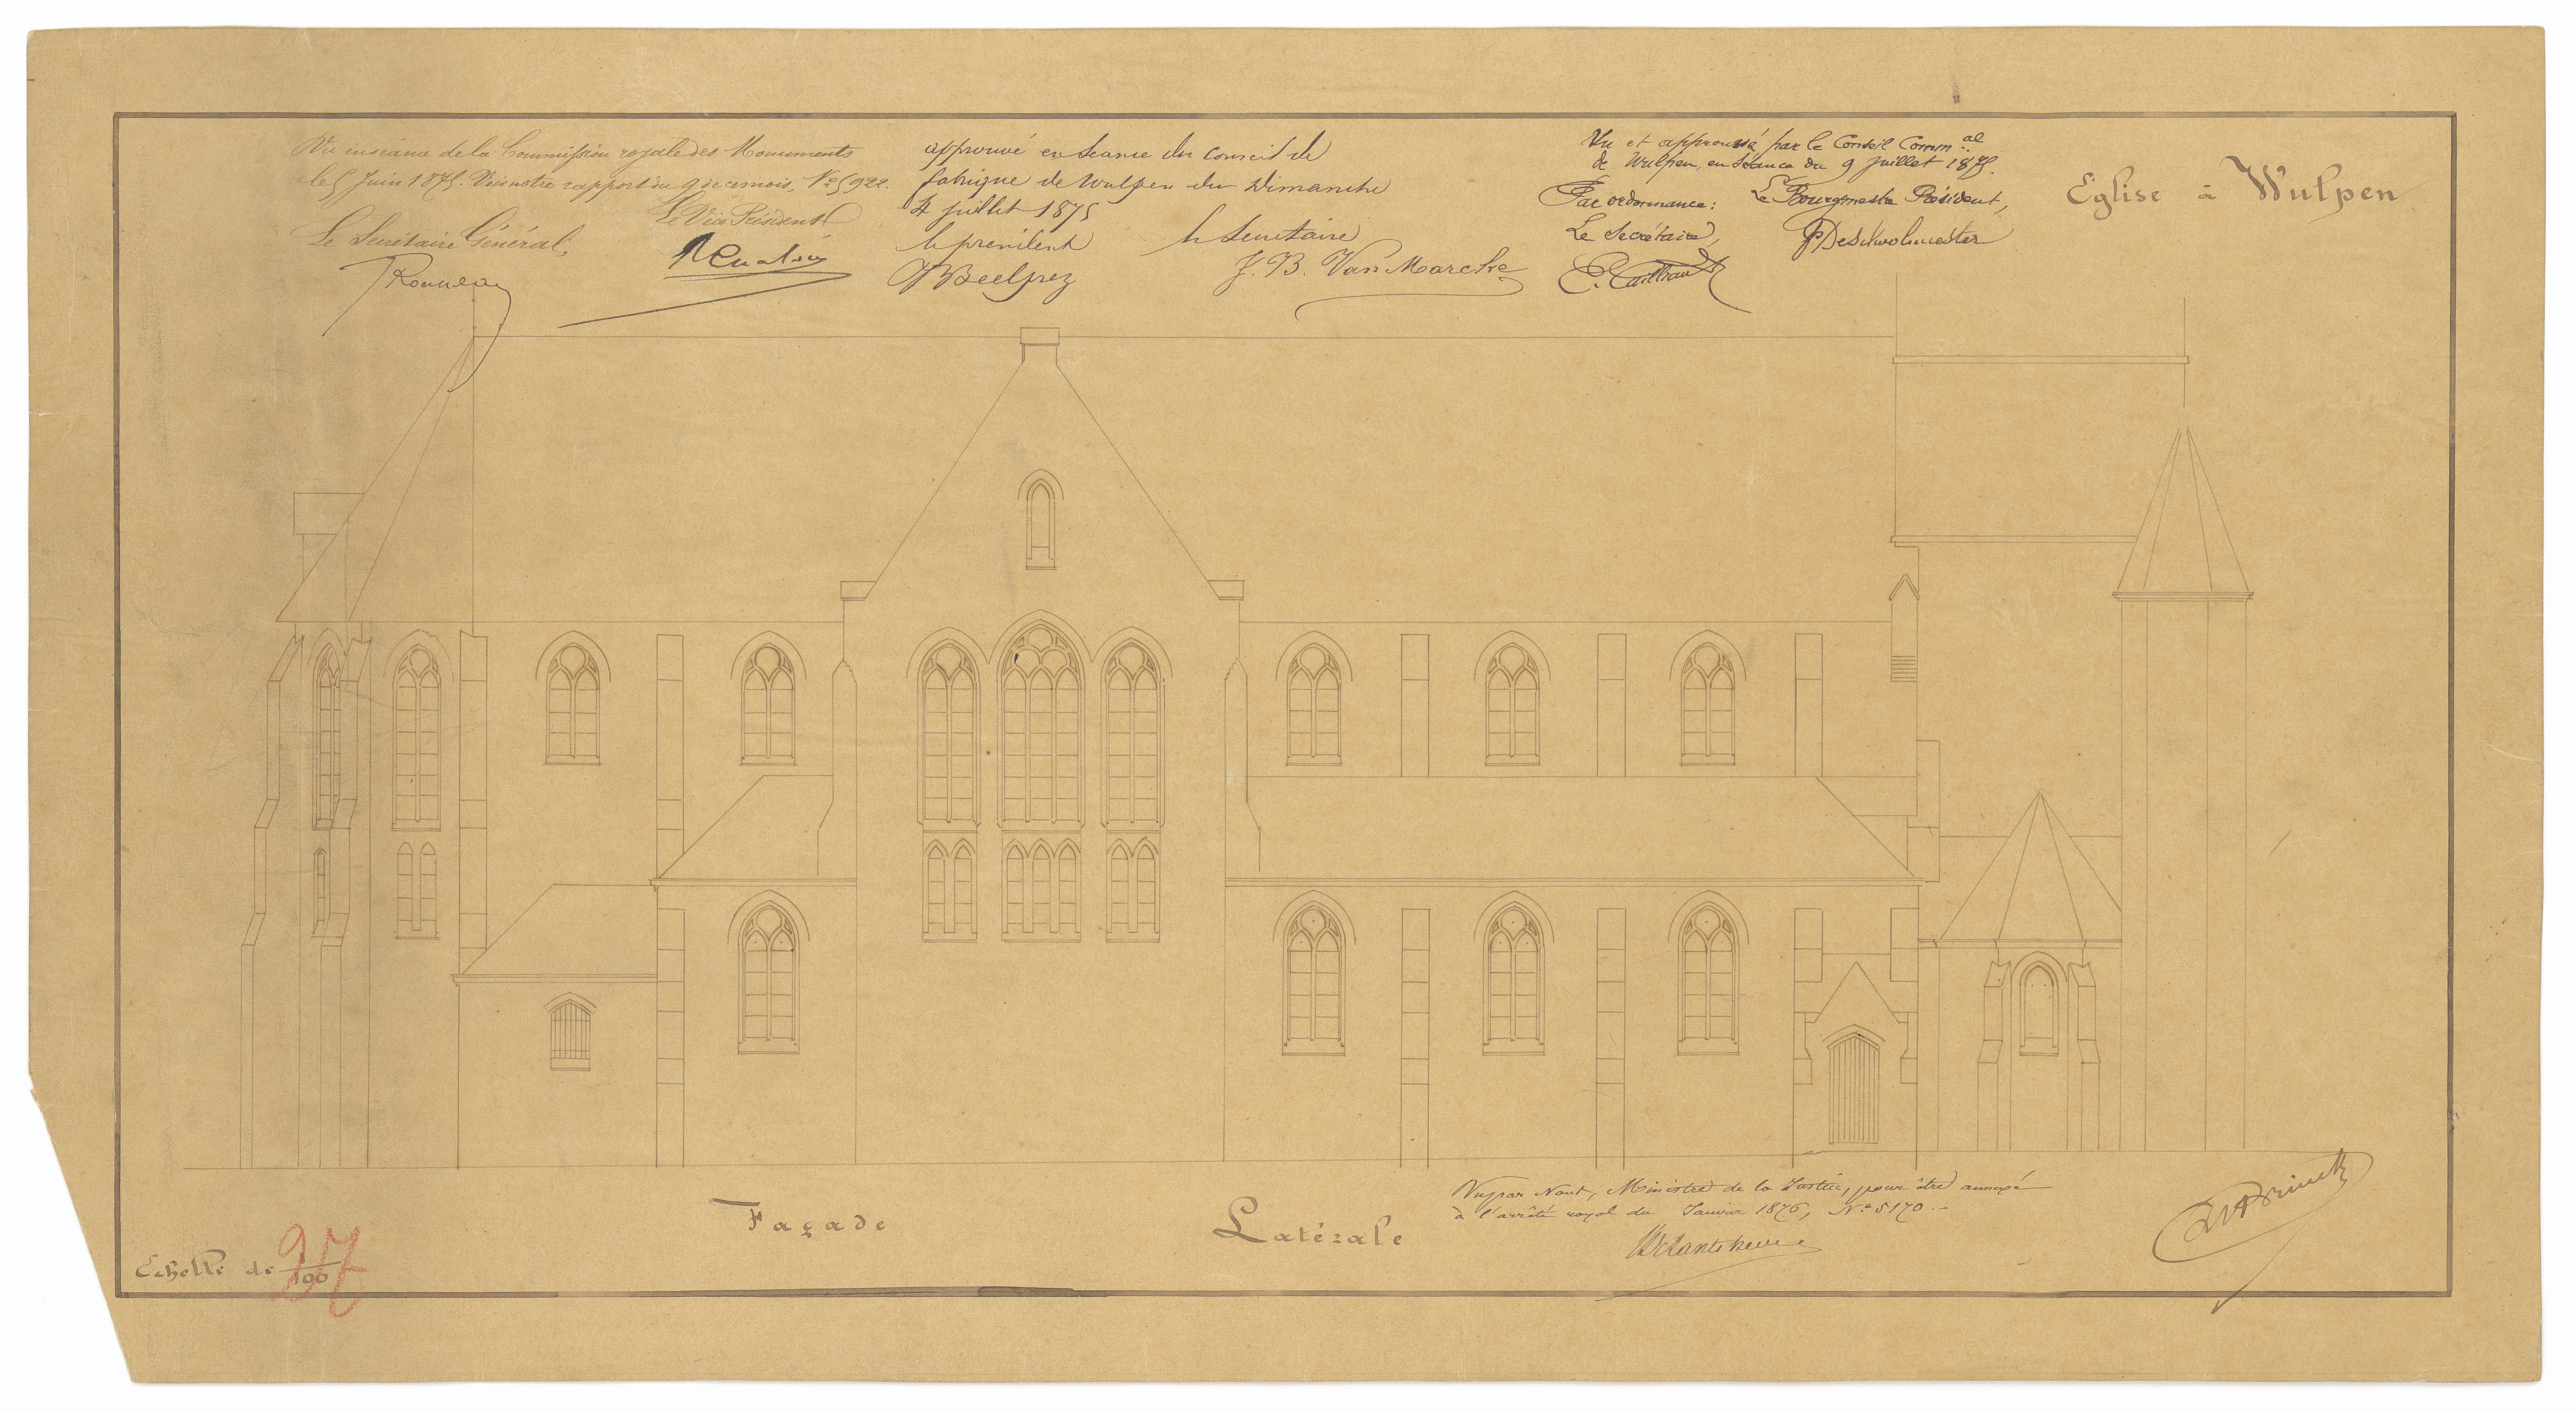 Vu en séance de la Commission royale des Monuments
le 5 Juin 1875. Vois notre rapport du 9 de ce mois, N° 5922.
Le Vice Président
Le Secrétaire Général,
Rousseau
approuvé en séance du Conseil de
fabrique de Wulpen du Dimanche
4 juillet 1875
le président
le Secretaire
J. B. Van Marcke
Vu et approuvé par le Conseil Comm.al
de Wulpen, en séance du 9 Juillet 1875.
Par ordonnance:
Le Bourgmestre Président,
Le Secrétaire,
Eglise à Wulpen
Façade Latérale
Vu par Nous, Ministre de la Justice, pour être annexé
à l'arrêté royal du Janvier 1876, N° 5170.-
Echelle de 1/100
27